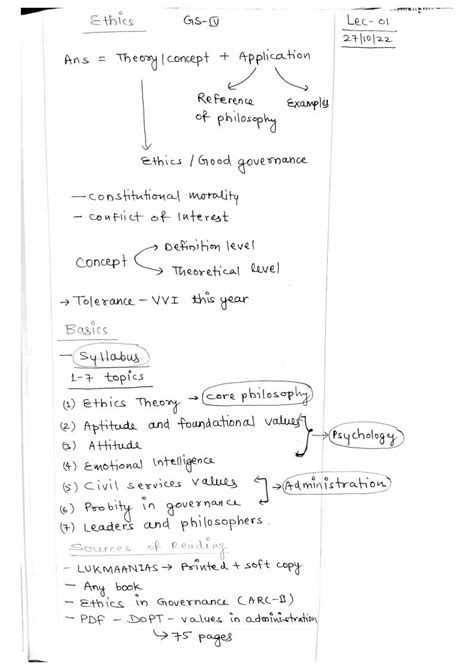 Ethics GS-IV
Lec-01
27/10/22
Ans = Theory/concept + Application
Reference of philosophy
Examples
Ethics / Good governance
- constitutional morality
- conflict of Interest
Concept
Definition level
Theoretical level
→ Tolerance - VVI this year
Basics
- Syllabus
1-7 topics
(1) Ethics Theory → core philosophy
(2) Aptitude and foundational values
(3) Attitude
→ Psychology
(4) Emotional Intelligence
(5) Civil services values
→ Administration
(6) Probity in governance
(7) Leaders and philosophers.
Sources of Reading
- LUKMAANIAS → Printed + soft copy
- Any book
- Ethics in Governance (ARC-II)
- PDF - DoPT - values in administration
↳ 75 pages